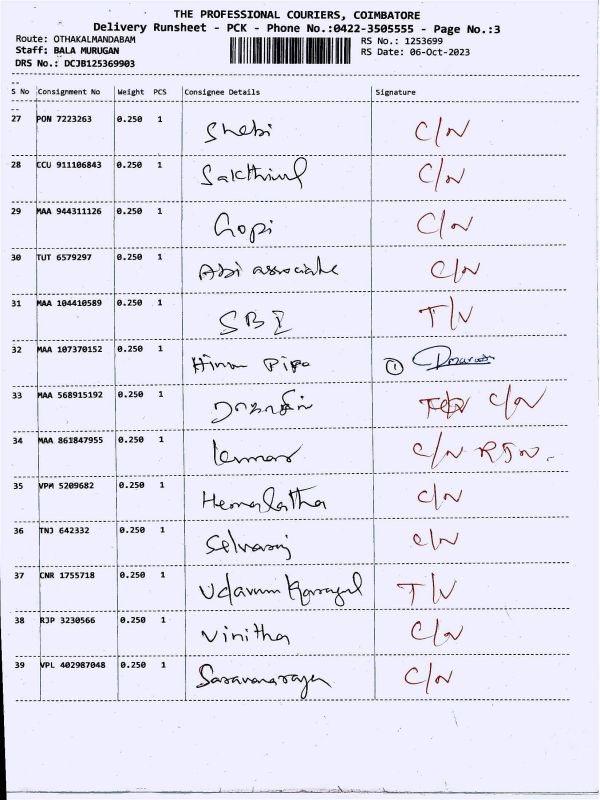 THE PROFESSIONAL COURIERS, COIMBATORE
Delivery Runsheet - PCK - Phone No.:0422-3505555 - Page No.:3
Route: OTHAKALMANDABAM RS No.: 1253699
Staff: BALA MURUGAN RS Date: 06-Oct-2023
DRS No.: DCJB125369903
S No Consignment No Weight PCS Consignee Details Signature
27 PON 7223263 0.250 1 Shebi C/N
28 CCU 911106843 0.250 1 Sakthivel C/N
29 MAA 944311126 0.250 1 Gopi C/N
30 TUT 6579297 0.250 1 Abi associate C/N
31 MAA 104410589 0.250 1 SBI T/V
32 MAA 107370152 0.250 1 Pipe ①
33 MAA 568915192 0.250 1 C/N
34 MAA 861847955 0.250 1 C/N
35 VPM 5209682 0.250 1 Hemalatha C/N
36 TNJ 642332 0.250 1 Selvaraj C/N
37 CNR 1755718 0.250 1 T/V
38 RJP 3230566 0.250 1 Vinitha C/N
39 VPL 402987048 0.250 1 C/N